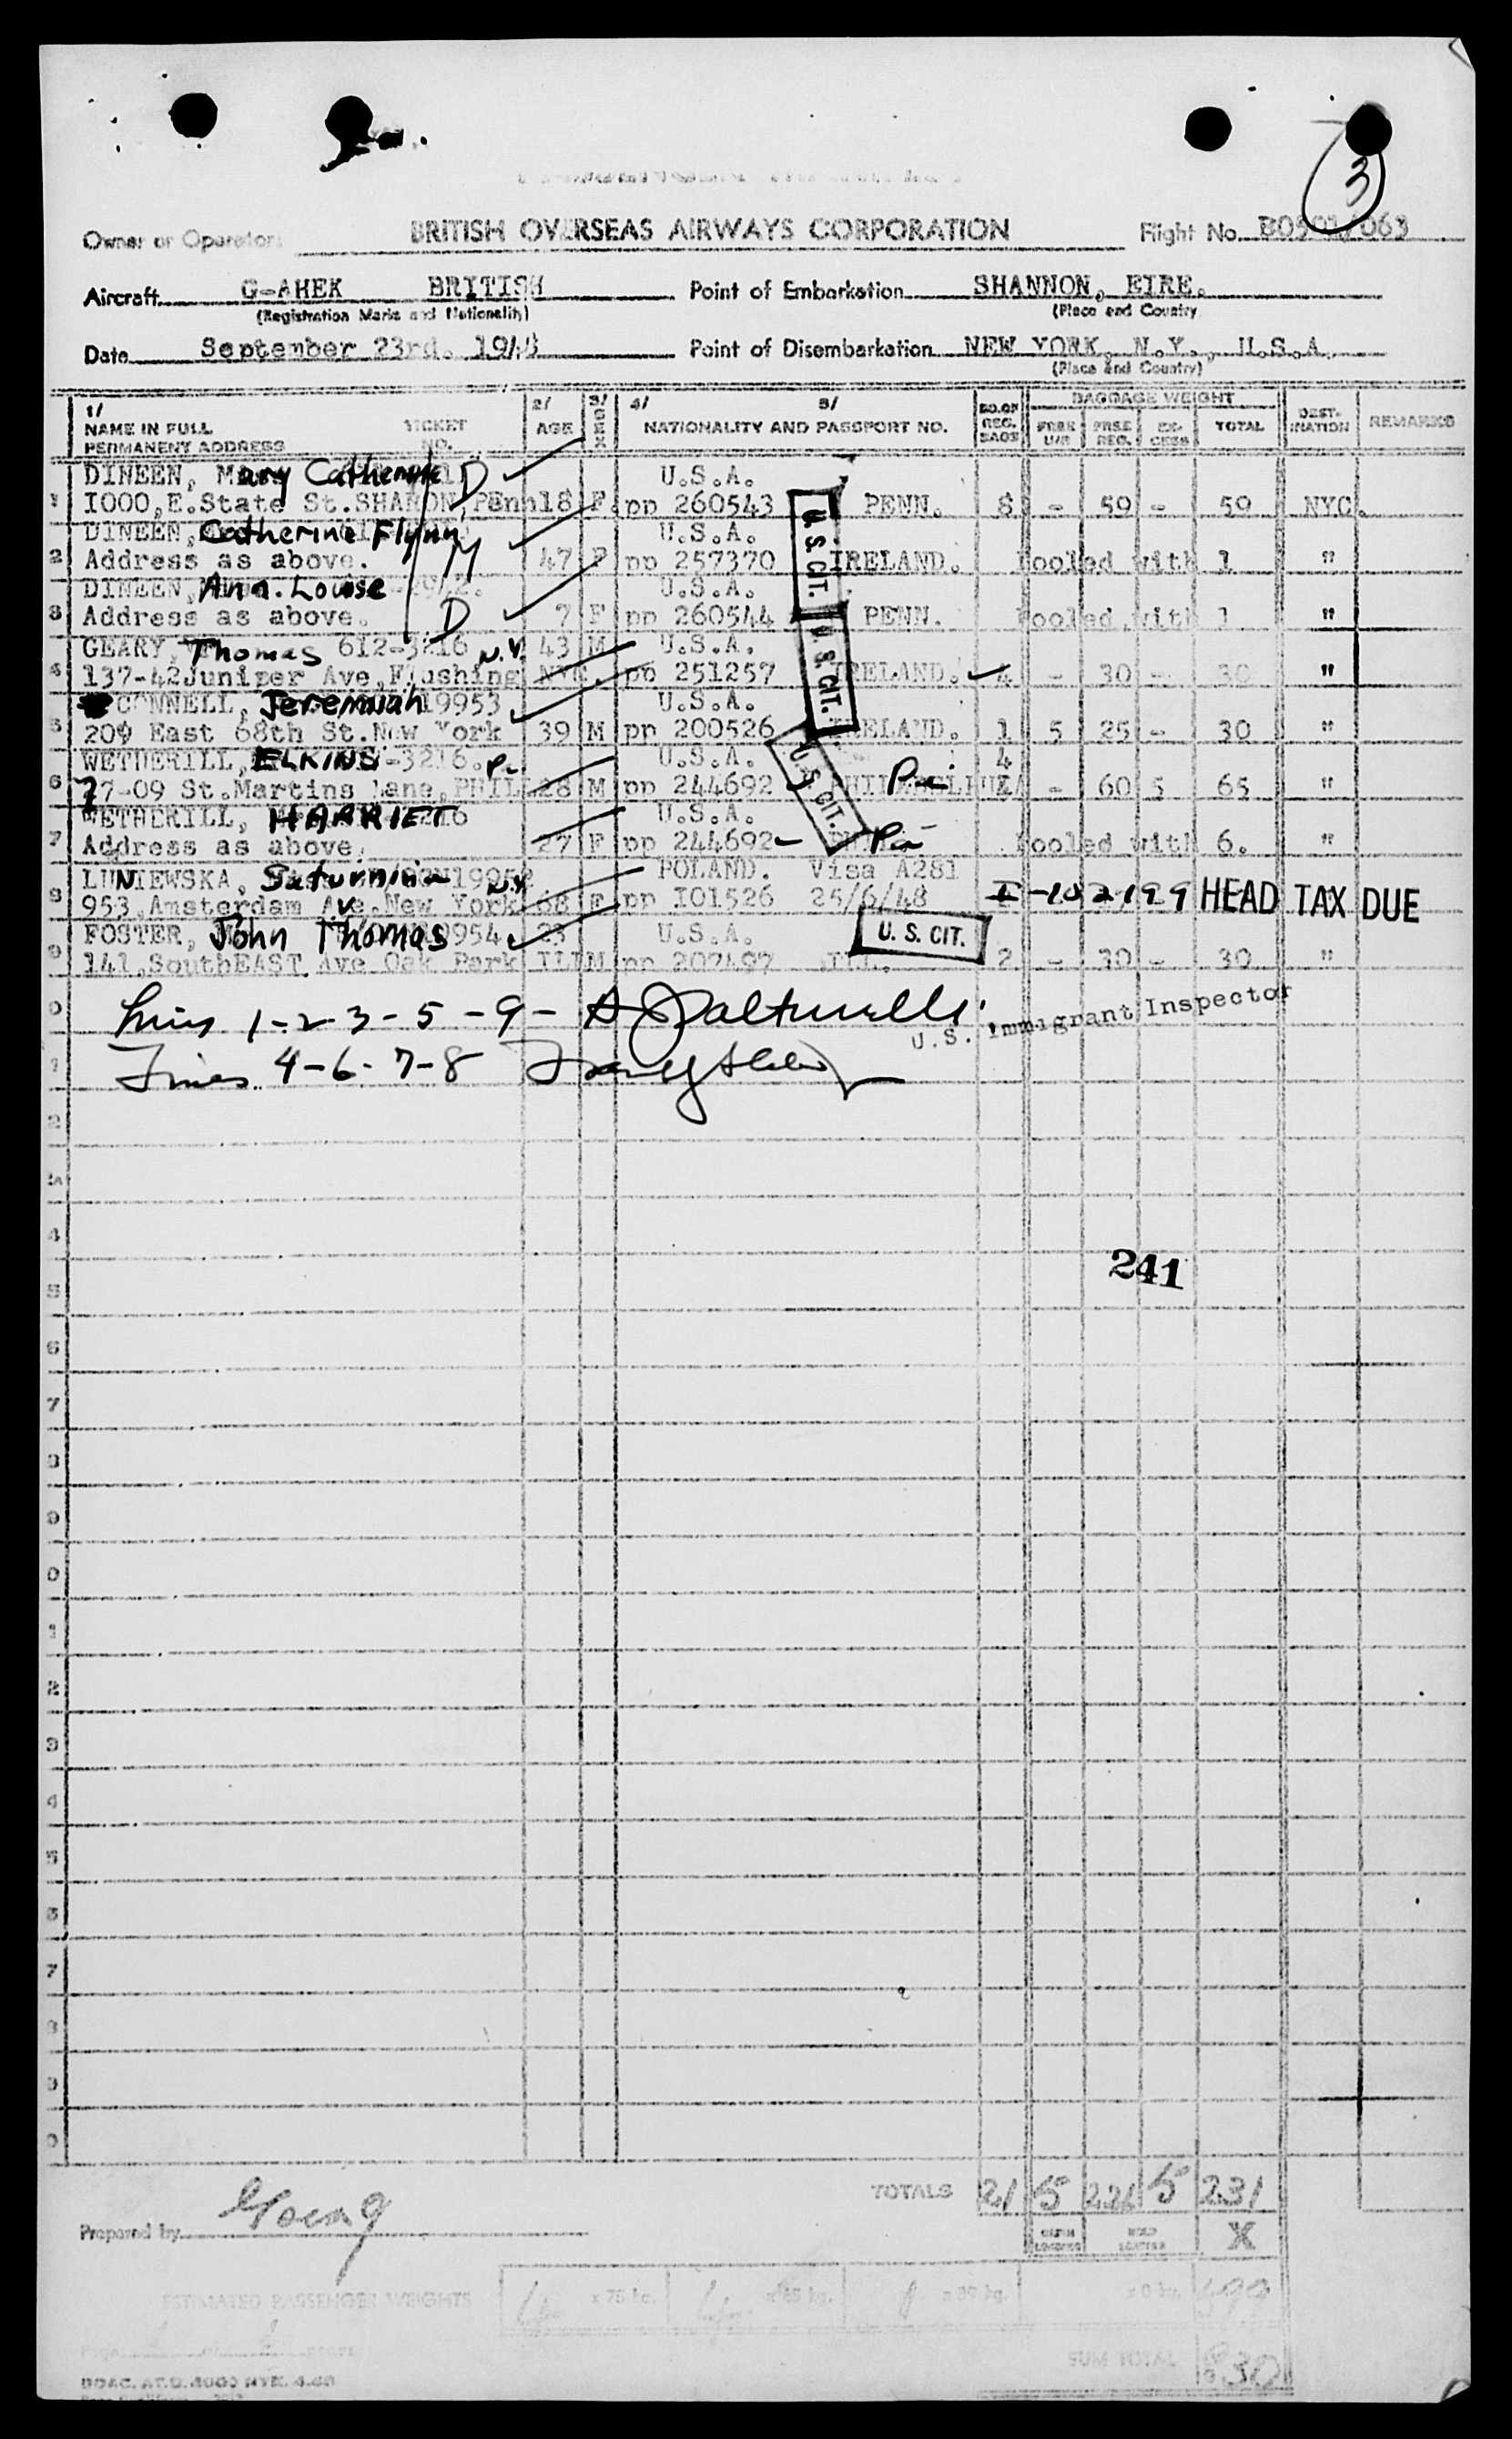 3
Owner or Operator: BRITISH OVERSEAS AIRWAYS CORPORATION Flight No.
Aircraft G-AHEK BRITISH Point of Embarkation SHANNON, EIRE.
(Registration Marks and Nationality) (Place and Country
Date September 23rd. 1948 Point of Disembarkation NEW YORK, N.Y., U.S.A.
(Place and Country)
1/ NAME IN FULL PERMANENT ADDRESS TICKET NO. 2/ AGE 3/ SEX 4/ 5/ NATIONALITY AND PASSPORT NO. NO.OF REG. BAGS BAGGAGE WEIGHT FREE U/R FREE REG. EX-CESS TOTAL DEST-INATION REMARKS
DINEEN, Mary Catherine D U.S.A.
1 1000,E.State St.SHARON,Penn 18 F pp 260543 PENN. 8 - 59 - 59 NYC.
DINEEN, Catherine Flynn M U.S.A.
2 Address as above. 47 F pp 257370 IRELAND. Pooled with 1 "
DINEEN, Ann. Louise U.S.A.
3 Address as above. D 7 F pp 260544 PENN. Pooled with 1 "
GEARY, Thomas 612-3216 N.Y. 43 M U.S.A.
4 137-42Juniper Ave,Flushing pp 251257 IRELAND. 4 - 30 - 30 "
CONNELL, Jeremiah 19953 U.S.A.
5 209 East 68th St.New York 39 M pp 200526 IRELAND. 1 5 25 - 30 "
WETHERILL, ELKINS -3216. Pa U.S.A. 4
6 77-09 St.Martins Lane, PHIL 28 M pp 244692 Pa - 60 5 65 "
WETHERILL, HARRIET U.S.A.
7 Address as above. 27 F pp 244692 Pa Pooled with 6. "
LUNIEWSKA, Saturnina N.Y. POLAND. Visa A281
8 953,Amsterdam Ave.New York 68 F pp 101526 25/6/48 HEAD TAX DUE
FOSTER, John Thomas 9954 23 U.S.A.
9 141,SouthEAST Ave Oak Park ILL M pp 207497 ILL. 2 - 30 - 30 "
U.S. CIT.
U.S. CIT.
U.S. CIT.
U. S. CIT.
Lines 1-2-3-5-9-
U.S. Immigrant Inspector
Lines 4-6-7-8
241
TOTALS 21 5 5 231
Prepared by
X
ESTIMATED PASSENGER WEIGHTS 4 x 75 kg. 4 x 65 kg. 1 x 39 kg.
SUM TOTAL